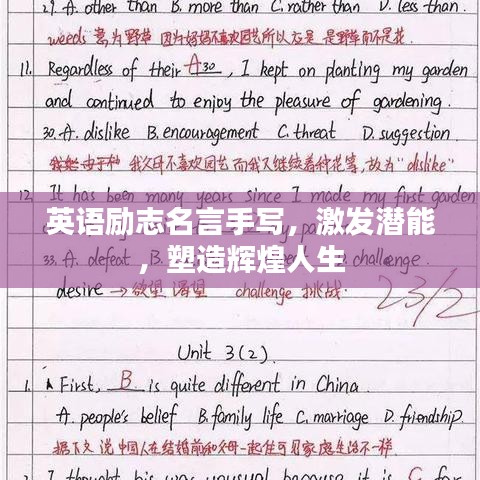 29. A. other than B. more than C. rather than D. less than.
weeds 意为野草 因为好妈不喜欢园艺所以应是 是野草而不是花.
11. Regardless of their A 30 , I kept on planting my garden
and continued to enjoy the pleasure of gardening.
30. A. dislike B. encouragement C. threat D. suggestion
我父母不喜欢园艺而我又继续着种花等, 故为"dislike"
12. It has been many years since I made my first garden
英语励志名言手写，激发潜能
，塑造辉煌人生
33. A. defeat B. challenge.
desire → 欲望 渴望 challenge 挑战.
23/2
Unit 3(2).
1. First, B is quite different in China.
A. people's belief B. family life C. marriage D. friendship.
据下文 说中国人在结婚前和父母一起住可见家庭生活不一样.
I thought his was unusual because it is C for